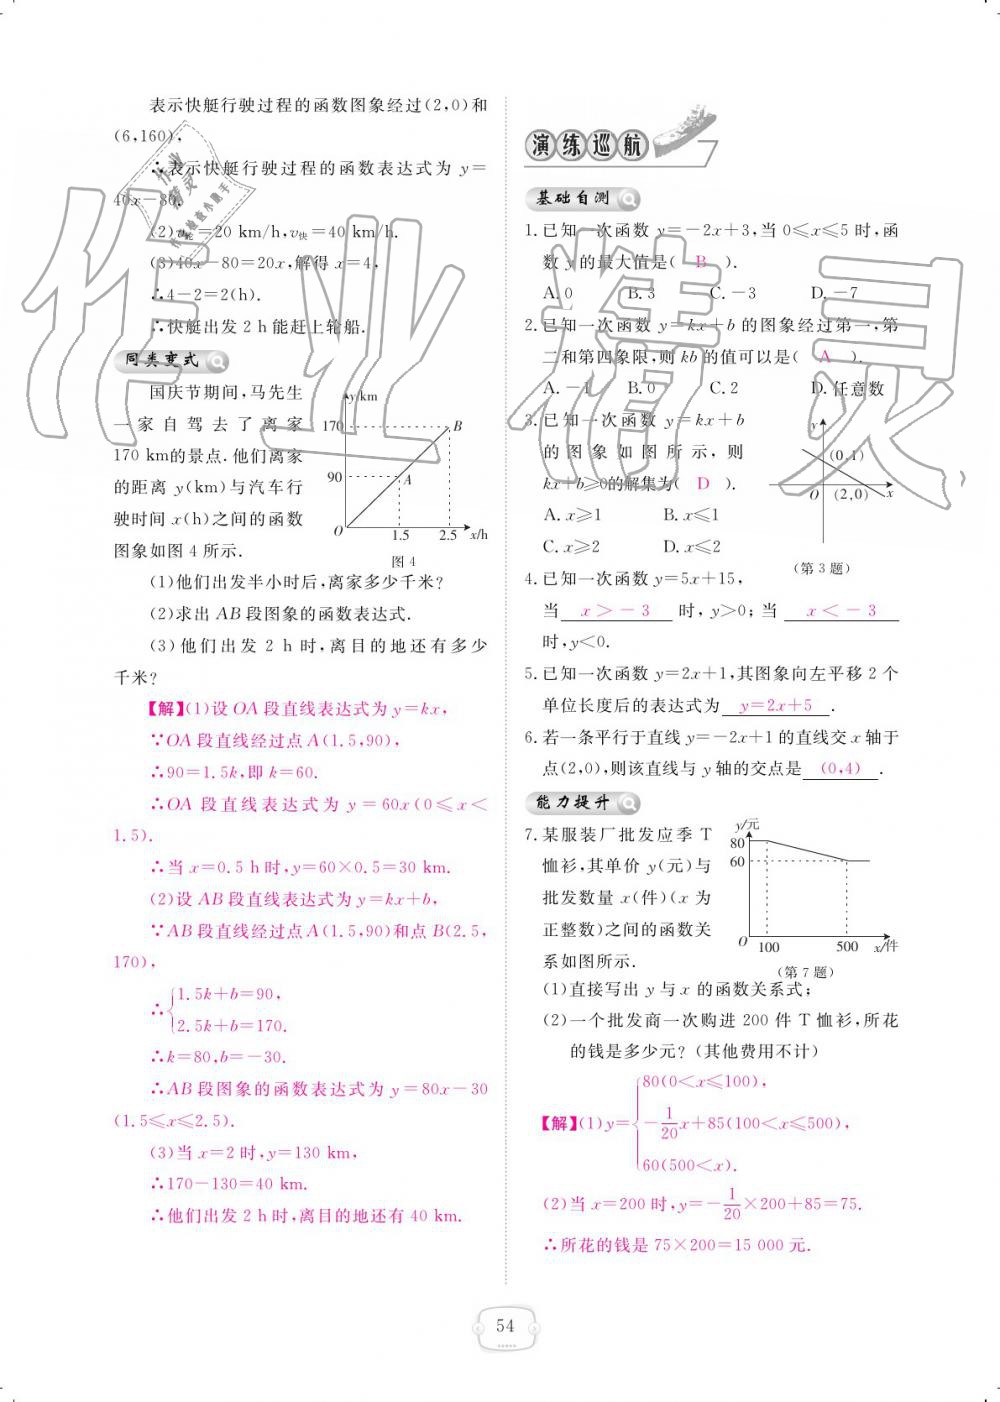 表示快艇行驶过程的函数图象经过(2,0)和
(6,160),
∴表示快艇行驶过程的函数表达式为 y=
40x-80.
(2)v轮=20 km/h,v快=40 km/h.
(3)40x-80=20x,解得 x=4,
∴4-2=2(h).
∴快艇出发 2 h 能赶上轮船.
同类变式
国庆节期间,马先生
一家自驾去了离家
170 km的景点.他们离家
的距离 y(km)与汽车行
驶时间 x(h)之间的函数
图象如图 4 所示.
y/km
170
B
90
A
O
1.5
2.5
x/h
图 4
(1)他们出发半小时后,离家多少千米?
(2)求出 AB 段图象的函数表达式.
(3)他们出发 2 h 时,离目的地还有多少
千米?
【解】(1)设 OA 段直线表达式为 y=kx,
∵OA 段直线经过点 A(1.5,90),
∴90=1.5k,即 k=60.
∴OA 段直线表达式为 y=60x(0≤x<
1.5).
∴当 x=0.5 h 时,y=60×0.5=30 km.
(2)设 AB 段直线表达式为 y=kx+b,
∵AB 段直线经过点 A(1.5,90)和点 B(2.5,
170),
∴{1.5k+b=90,
2.5k+b=170.
∴k=80,b=-30.
∴AB 段图象的函数表达式为 y=80x-30
(1.5≤x≤2.5).
(3)当 x=2 时,y=130 km,
∴170-130=40 km.
∴他们出发 2 h 时,离目的地还有 40 km.
演练巡航
基础自测
1.已知一次函数 y=-2x+3,当 0≤x≤5 时,函
数 y 的最大值是( B ).
A.0 B.3 C.-3 D.-7
2.已知一次函数 y=kx+b 的图象经过第一,第
二和第四象限,则 kb 的值可以是( A ).
A.-1 B.0 C.2 D.任意数
3.已知一次函数 y=kx+b
的图象如图所示,则
kx+b≥0的解集为( D ).
A.x≥1 B.x≤1
C.x≥2 D.x≤2
y
(0,1)
O
(2,0)
x
(第 3 题)
4.已知一次函数 y=5x+15,
当 x>-3 时,y>0;当 x<-3
时,y<0.
5.已知一次函数 y=2x+1,其图象向左平移 2 个
单位长度后的表达式为 y=2x+5 .
6.若一条平行于直线 y=-2x+1 的直线交 x 轴于
点(2,0),则该直线与 y 轴的交点是 (0,4) .
能力提升
7.某服装厂批发应季 T
恤衫,其单价 y(元)与
批发数量 x(件)(x 为
正整数)之间的函数关
系如图所示.
y/元
80
60
O
100
500
x/件
(第 7 题)
(1)直接写出 y 与 x 的函数关系式;
(2)一个批发商一次购进 200 件 T 恤衫,所花
的钱是多少元?(其他费用不计)
【解】(1)y={80(0<x≤100),
-1/20x+85(100<x≤500),
60(500<x).
(2)当 x=200 时,y=-1/20×200+85=75.
∴所花的钱是 75×200=15 000 元.
54
作业精灵